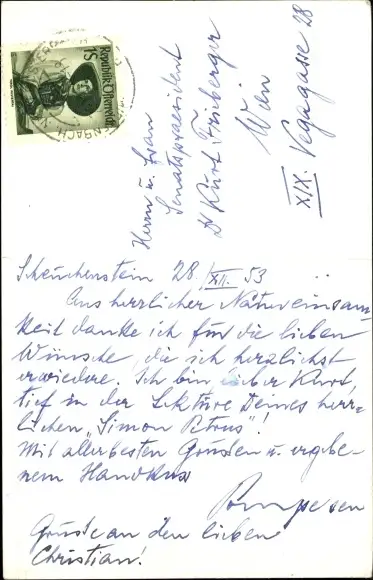 1S
Republik Österreich
Herrn u. Frau
Senatspraesident
Dr Kurt Frieberger
Wien
XIX. Vegagasse 28
Scheuchenstein 28./XII. 53
Aus herrlicher Natureinsam-
keit danke ich für die lieben
Wünsche, die ich herzlichst
erwiedere. Ich bin, lieber Kurt,
tief in der Lektüre Deines herr-
lichen „Simon Petrus"!
Mit allerbesten Grüssen u. ergebe-
nem Handkuss
Grüsse an den lieben
Christian!